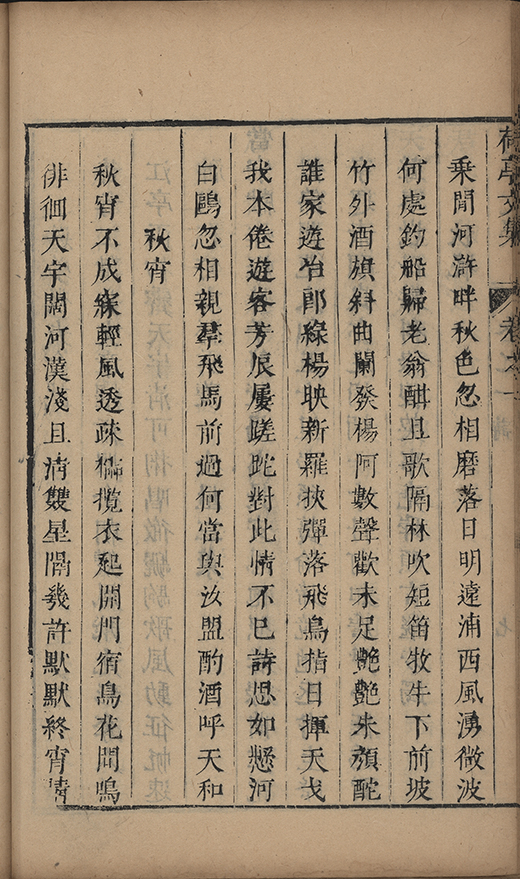 荷亭文集 卷之一
乘閒河滸畔秋色忽相磨落日明遠浦西風湧微波
何處釣船歸老翁酣且歌隔林吹短笛牧牛下前坡
竹外酒旗斜曲闌發楊阿數聲歡未足艷艷朱顏酡
誰家遊冶郎綠楊映新羅挾彈落飛鳥指日揮天戈
我本倦遊客芳辰屢蹉跎對此情不已詩思如懸河
白鷗忽相親羣飛馬前過何當與汝盟酌酒呼天和
秋宵
秋宵不成寐輕風透疎櫺攬衣起開門宿鳥花間鳴
徘徊天宇闊河漢淺且淸雙星隔幾許默默終宵情